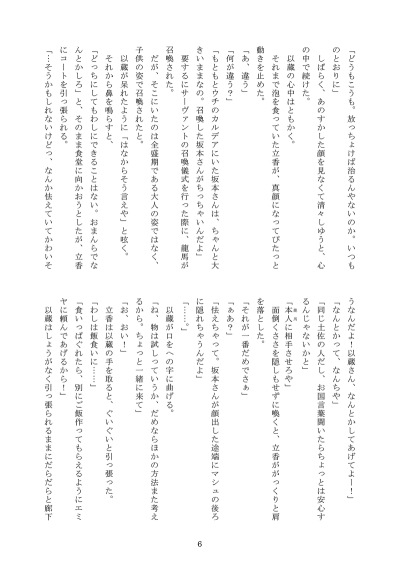 「どうもこうも。放っちょけば治るんやないのか。いつも
のとおりに」
　しばらく、あのすかした顔を見なくて清々しゆうと、心
の中で続けた。
　以蔵の心中はともかく。
　それまで泡を食っていた立香が、真顔になってぴたっと
動きを止めた。
「あ、違う」
「何が違う？」
「もともとウチのカルデアにいた坂本さんは、ちゃんと大
きいままなの。召喚した坂本さんがちっちゃいんだよ」
　要するにサーヴァントの召喚儀式を行った際に、龍馬が
召喚された。
　だが、そこにいたのは全盛期である大人の姿ではなく、
子供の姿で召喚されたと。
　以蔵が呆れたように「はなからそう言えや」と呟く。
　それから鼻を鳴らすと、
「どっちにしてもわしにできることはない。おまんらでな
んとかしろ」と、そのまま食堂に向かおうとしたが、立香
にコートを引っ張られる。
「…そうかもしれないけどっ、なんか怯えていてかわいそ
うなんだよ！以蔵さん、なんとかしてあげてよー！」
「なんとかって、なんちや」
「同じ土佐の人だし、お国言葉聞いたらちょっとは安心す
るんじゃないかと」
「本人に相手させろや」
　面倒くささを隠しもせずに喚くと、立香ががっくりと肩
を落とした。
「それが一番だめでさぁ」
「ぁあ？」
「怯えちゃって。坂本さんが顔出した途端にマシュの後ろ
に隠れちゃうんだよ」
「……。」
　以蔵が口をへの字に曲げる。
「ね、物は試しっていうか、だめならほかの方法また考え
るから。ちょっと一緒に来て」
「お、おい！」
　立香は以蔵の手を取ると、ぐいぐいと引っ張った。
「わしは飯食いに……」
「食いっぱぐれたら、別にご飯作ってもらえるようにエミ
ヤに頼んであげるから！」
　以蔵はしょうがなく引っ張られるままにだらだらと廊下
6